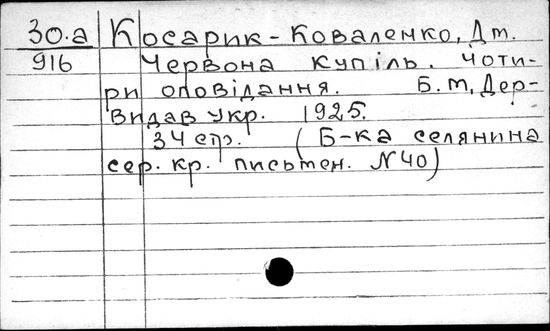 30.а Косарик-Коваленко, Дм.
916 Червона купіль. Чоти-
ри оповідання. Б.М, Дер-
видав Укр. 1925.
34 стр. (Б-ка селянина
сер. кр. письмен. N40)